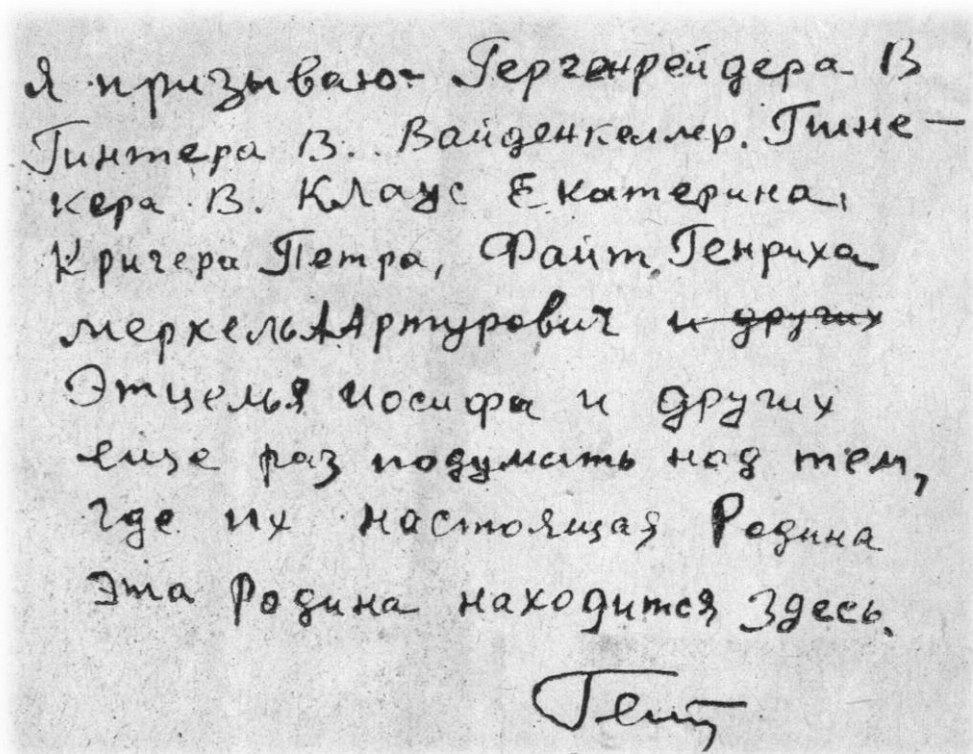 Я призываю Гергенрейдера В
Гинтера В. Вайденкеллер.
кера В. Клаус Екатерина,
Кригера Петра, Файт Генриха
меркель А Артурович и других
Этцеля иосифа и других
еще раз подумать над тем,
где их настоящая Родина
эта Родина находится здесь.